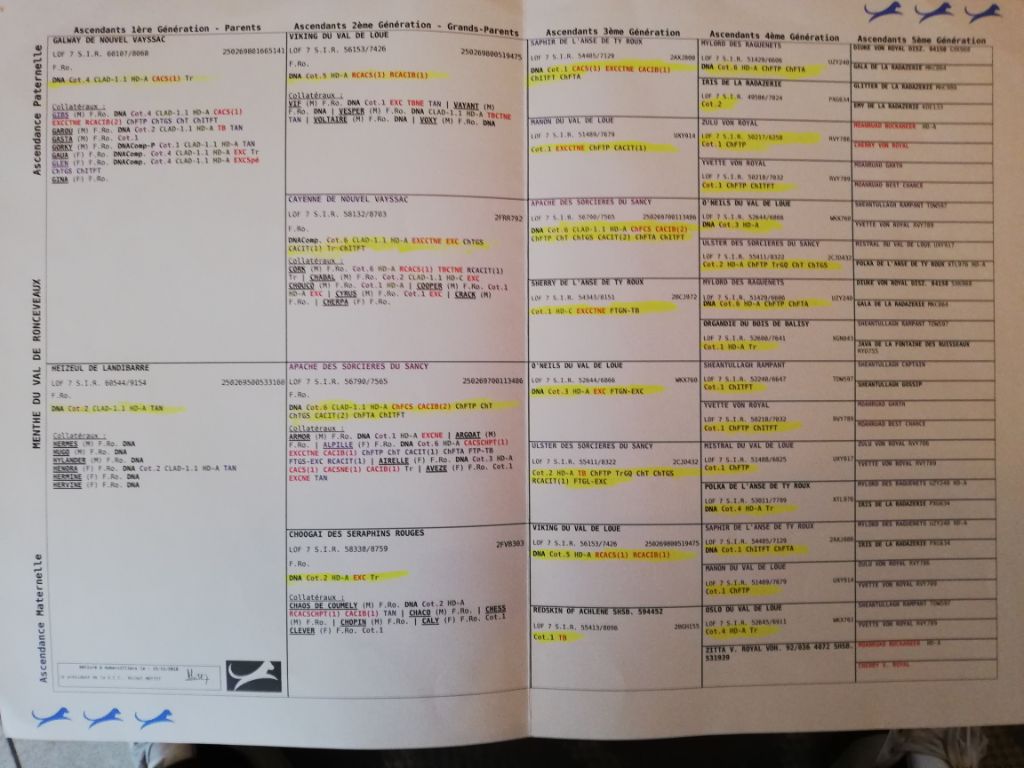 Ascendants 1ère Génération - Parents
Ascendants 2ème Génération - Grands-Parents
Ascendants 3ème Génération
Ascendants 4ème Génération
Ascendants 5ème Génération
MENTHE DU VAL DE RONCEVEAUX
Ascendance Paternelle
GALWAY DE NOUVEL VAYSSAC
LOF 7 S.I.R. 60107/8060
250269801665141
F.Ro.
DNA Cot.4 CLAD-1.1 HD-A CACS(1) Tr
Collatéraux :
GIBS (M) F.Ro. DNA Cot.4 CLAD-1.1 HD-A CACS(1)
EXCCTNE RCACIB(2) ChFTP ChTGS ChT ChITFT
GAROU (M) F.Ro. DNA Cot.2 CLAD-1.1 HD-A TB TAN
GASTA (M) F.Ro. Cot.1
GORKY (M) F.Ro. DNAComp-P Cot.1 CLAD-1.1 HD-A TAN
GAUA (F) F.Ro. DNAComp. Cot.4 CLAD-1.1 HD-A EXC Tr
GLEN (F) F.Ro. DNAComp. Cot.4 CLAD-1.1 HD-A EXCSpé
ChTGS ChITFT
GINA (F) F.Ro.
Ascendance Maternelle
HEIZEUL DE LANDIBARRE
LOF 7 S.I.R. 60544/9154
250269500533100
F.Ro.
DNA Cot.2 CLAD-1.1 HD-A TAN
Collatéraux :
HERMES (M) F.Ro. DNA
HUGO (M) F.Ro. DNA
HYLANDER (M) F.Ro. DNA
HENDRA (F) F.Ro. DNA Cot.2 CLAD-1.1 HD-A TAN
HERMINE (F) F.Ro. DNA
HERVINE (F) F.Ro. DNA
VIKING DU VAL DE LOUE
LOF 7 S.I.R. 56153/7426
250269800519475
F.Ro.
DNA Cot.5 HD-A RCACS(1) RCACIB(1)
Collatéraux :
VIF (M) F.Ro. DNA Cot.1 EXC TBNE TAN | VAYANT (M)
F.Ro. DNA | VESPER (M) F.Ro. DNA CLAD-1.1 HD-A TBCTNE
TAN | VOLTAIRE (M) F.Ro. DNA | VOXY (M) F.Ro. DNA
CAYENNE DE NOUVEL VAYSSAC
LOF 7 S.I.R. 58132/8703
2FRR792
F.Ro.
DNAComp. Cot.6 CLAD-1.1 HD-A EXCCTNE EXC ChTGS
CACIT(1) Tr ChITFT
Collatéraux :
CORK (M) F.Ro. Cot.6 HD-A RCACS(1) TBCTNE RCACIT(1)
Tr | CHABAL (M) F.Ro. Cot.2 CLAD-1.1 HD-C EXC
CHOUCO (M) F.Ro. Cot.1 HD-A | COOPER (M) F.Ro. Cot.1
HD-A EXC | CYRUS (M) F.Ro. Cot.1 EXC | CRACK (M)
F.Ro. | CHERPA (F) F.Ro.
APACHE DES SORCIERES DU SANCY
LOF 7 S.I.R. 56790/7565
250269700113486
F.Ro.
DNA Cot.6 CLAD-1.1 HD-A ChFCS CACIB(2) ChFTP ChT
ChTGS CACIT(2) ChFTA ChITFT
Collatéraux :
ARMOR (M) F.Ro. DNA Cot.1 HD-A EXCNE | ARGOAT (M)
F.Ro. | ALPILLE (F) F.Ro. DNA Cot.6 HD-A CACSCHPT(1)
EXCCTNE CACIB(1) ChFTP ChT CACIT(1) ChFTA FTP-TB
FTGS-EXC RCACIT(1) | AIRELLE (F) F.Ro. DNA Cot.3 HD-A
CACS(1) CACSNE(1) CACIB(1) Tr | AVEZE (F) F.Ro. Cot.1
EXCNE TAN
CHOOGAI DES SERAPHINS ROUGES
LOF 7 S.I.R. 58338/8759
2FVB303
F.Ro.
DNA Cot.2 HD-A EXC Tr
Collatéraux :
CHAOS DE COUMELY (M) F.Ro. DNA Cot.2 HD-A
RCACSCHPT(1) CACIB(1) TAN | CHACO (M) F.Ro. | CHESS
(M) F.Ro. | CHOPIN (M) F.Ro. | CALY (F) F.Ro. Cot.1
CLEVER (F) F.Ro. Cot.1
SAPHIR DE L'ANSE DE TY ROUX
LOF 7 S.I.R. 54405/7129
2AKJ800
DNA Cot.1 CACS(1) EXCCTNE CACIB(1)
ChITFT ChFTA
MANON DU VAL DE LOUE
LOF 7 S.I.R. 51489/7679
UXY914
Cot.1 EXCCTNE ChFTP CACIT(1)
APACHE DES SORCIERES DU SANCY
LOF 7 S.I.R. 56790/7565
250269700113486
DNA Cot.6 CLAD-1.1 HD-A ChFCS CACIB(2)
ChFTP ChT ChTGS CACIT(2) ChFTA ChITFT
SHERRY DE L'ANSE DE TY ROUX
LOF 7 S.I.R. 54343/8151
2BCJ072
Cot.1 HD-C EXCCTNE FTGN-TB
O'NEILS DU VAL DE LOUE
LOF 7 S.I.R. 52644/6866
WKX760
DNA Cot.3 HD-A EXC FTGN-EXC
ULSTER DES SORCIERES DU SANCY
LOF 7 S.I.R. 55411/8322
2CJD432
Cot.2 HD-A TB ChFTP TrGQ ChT ChTGS
RCACIT(1) FTGL-EXC
VIKING DU VAL DE LOUE
LOF 7 S.I.R. 56153/7426
250269800519475
DNA Cot.5 HD-A RCACS(1) RCACIB(1)
REDSKIN OF ACHLENE SHSB. 594452
LOF 7 S.I.R. 55413/8096
2BGH155
Cot.1 TB
MYLORD DES RAGUENETS
LOF 7 S.I.R. 51429/6606
UZY240
DNA Cot.6 HD-A ChFTP ChFTA
IRIS DE LA RADAZERIE
LOF 7 S.I.R. 49506/7024
PXG634
Cot.2
ZULU VON ROYAL
LOF 7 S.I.R. 50217/6358
RVY706
Cot.1 ChFTP
YVETTE VON ROYAL
LOF 7 S.I.R. 50218/7032
RVY789
Cot.1 ChFTP ChITFT
O'NEILS DU VAL DE LOUE
LOF 7 S.I.R. 52644/6866
WKX760
DNA Cot.3 HD-A
ULSTER DES SORCIERES DU SANCY
LOF 7 S.I.R. 55411/8322
2CJD432
Cot.2 HD-A ChFTP TrGQ ChT ChTGS
MYLORD DES RAGUENETS
LOF 7 S.I.R. 51429/6606
UZY240
DNA Cot.6 HD-A ChFTP ChFTA
ORGANDIE DU BOIS DE BALISY
LOF 7 S.I.R. 52600/7641
XGN043
Cot.1 HD-A Tr
SHEANTULLAGH RAMPANT
LOF 7 S.I.R. 52240/6647
TDW597
Cot.1 ChITFT
YVETTE VON ROYAL
LOF 7 S.I.R. 50218/7032
RVY789
Cot.1 ChFTP ChITFT
MISTRAL DU VAL DE LOUE
LOF 7 S.I.R. 51488/6825
UXY917
Cot.1 ChFTP
POLKA DE L'ANSE DE TY ROUX
LOF 7 S.I.R. 53011/7789
XTL976
DNA Cot.4 HD-A Tr
SAPHIR DE L'ANSE DE TY ROUX
LOF 7 S.I.R. 54405/7129
2AKJ800
DNA Cot.1 ChITFT ChFTA
MANON DU VAL DE LOUE
LOF 7 S.I.R. 51489/7679
UXY914
Cot.1 ChFTP
OSLO DU VAL DE LOUE
LOF 7 S.I.R. 52645/6911
WKX763
Cot.4 HD-A Tr
ZITTA V. ROYAL VDH. 92/036 4072 SHSB.
531939
GALA DE LA RADAZERIE
GLITTER DE LA RADAZERIE
EMY DE LA RADAZERIE
MOANRUAD BUCKANEER HD-A
CHERRY VON ROYAL
MOANRUAD GARTH
MOANRUAD BEST CHANCE
SHEANTULLAGH RAMPANT TDW597
YVETTE VON ROYAL RVY789
MISTRAL DU VAL DE LOUE UXY917
POLKA DE L'ANSE DE TY ROUX XTL976 HD-A
GALA DE LA RADAZERIE
SHEANTULLAGH RAMPANT TDW597
JAVA DE LA FONTAINE DES RUISSEAUX
SHEANTULLAGH CAPTAIN
SHEANTULLAGH GOSSIP
MOANRUAD GARTH
MOANRUAD BEST CHANCE
ZULU VON ROYAL RVY706
YVETTE VON ROYAL RVY789
MYLORD DES RAGUENETS UZY240 HD-A
IRIS DE LA RADAZERIE PXG634
MYLORD DES RAGUENETS UZY240 HD-A
IRIS DE LA RADAZERIE PXG634
ZULU VON ROYAL RVY706
YVETTE VON ROYAL RVY789
SHEANTULLAGH RAMPANT TDW597
YVETTE VON ROYAL RVY789
MOANRUAD BUCKANEER HD-A
CHERRY V. ROYAL